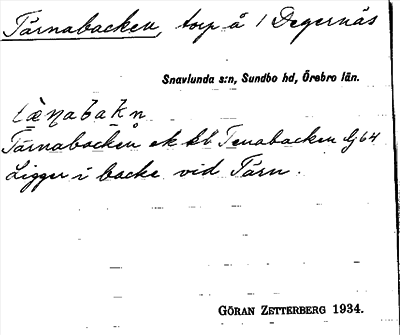 Tärnabacken, torp å / Degernäs
Snavlunda s:n, Sundbo hd, Örebro län.
tæɳabakn
Tärnabacken ek kb Tenabacken Gj64
Ligger i backe vid Tärn.
GÖRAN ZETTERBERG 1934.